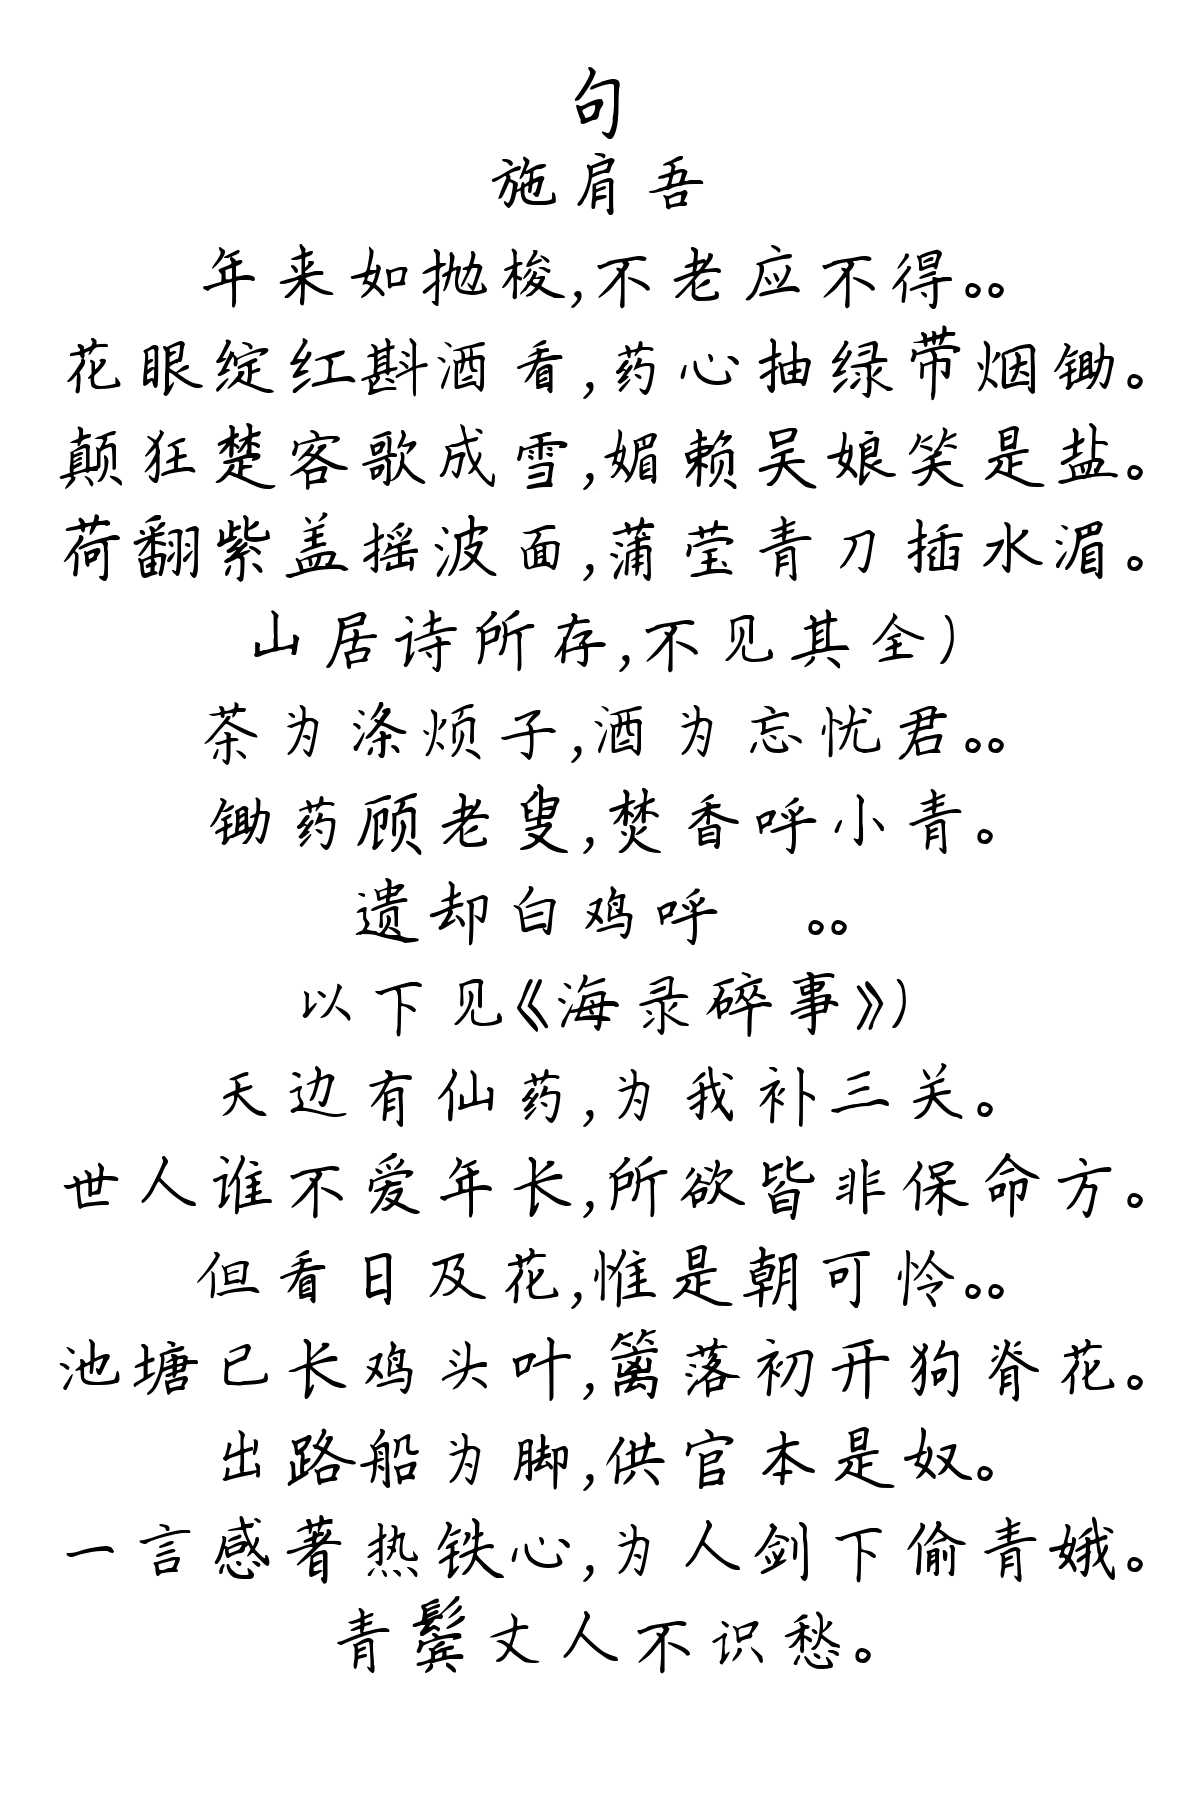 句
施肩吾
年来如抛梭,不老应不得。。
花眼绽红斟酒看,药心抽绿带烟锄。
颠狂楚客歌成雪,媚赖吴娘笑是盐。
荷翻紫盖摇波面,蒲莹青刀插水湄。
山居诗所存,不见其全)
茶为涤烦子,酒为忘忧君。。
锄药顾老叟,焚香呼小青。
遗却白鸡呼 。。
以下见《海录碎事》)
天边有仙药,为我补三关。
世人谁不爱年长,所欲皆非保命方。
但看日及花,惟是朝可怜。。
池塘已长鸡头叶,篱落初开狗脊花。
出路船为脚,供官本是奴。
一言感著热铁心,为人剑下偷青娥。
青鬓丈人不识愁。